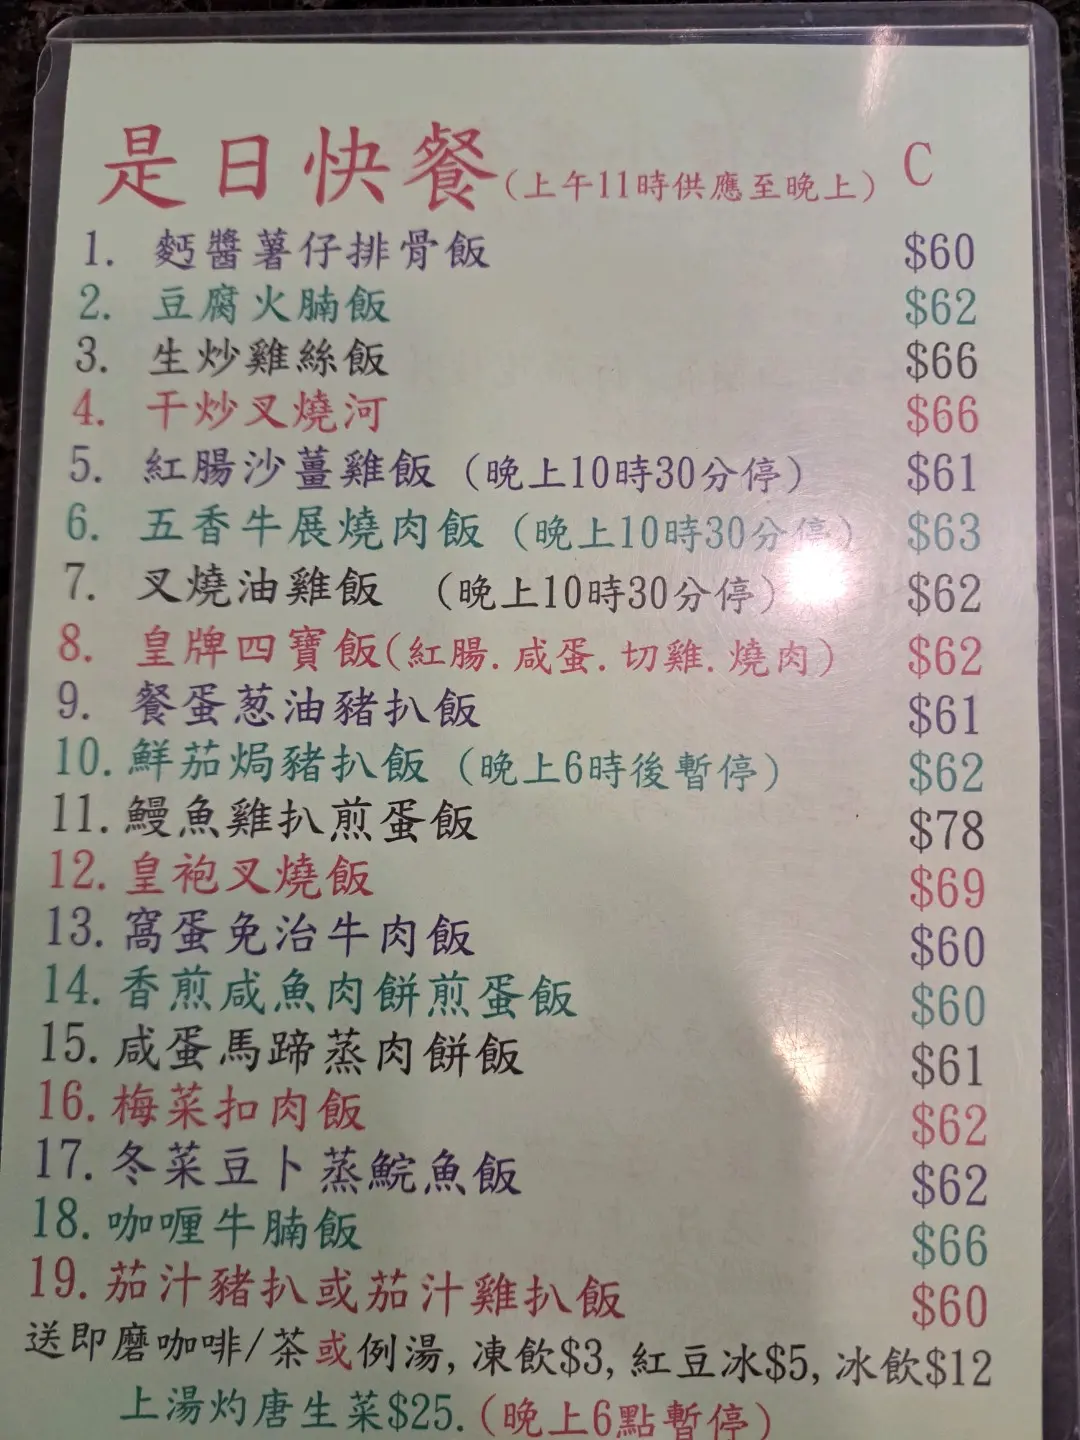 是日快餐(上午11時供應至晚上) C
1. 麪醬薯仔排骨飯 $60
2. 豆腐火腩飯 $62
3. 生炒雞絲飯 $66
4. 干炒叉燒河 $66
5. 紅腸沙薑雞飯 (晚上10時30分停) $61
6. 五香牛展燒肉飯 (晚上10時30分停) $63
7. 叉燒油雞飯 (晚上10時30分停) $62
8. 皇牌四寶飯(紅腸.咸蛋.切雞.燒肉) $62
9. 餐蛋葱油豬扒飯 $61
10. 鮮茄焗豬扒飯 (晚上6時後暫停) $62
11. 鰻魚雞扒煎蛋飯 $78
12. 皇袍叉燒飯 $69
13. 窩蛋免治牛肉飯 $60
14. 香煎咸魚肉餅煎蛋飯 $60
15. 咸蛋馬蹄蒸肉餅飯 $61
16. 梅菜扣肉飯 $62
17. 冬菜豆卜蒸鯇魚飯 $62
18. 咖喱牛腩飯 $66
19. 茄汁豬扒或茄汁雞扒飯 $60
送即磨咖啡/茶或例湯, 凍飲$3, 紅豆冰$5, 冰飲$12
上湯灼唐生菜$25. (晚上6點暫停)